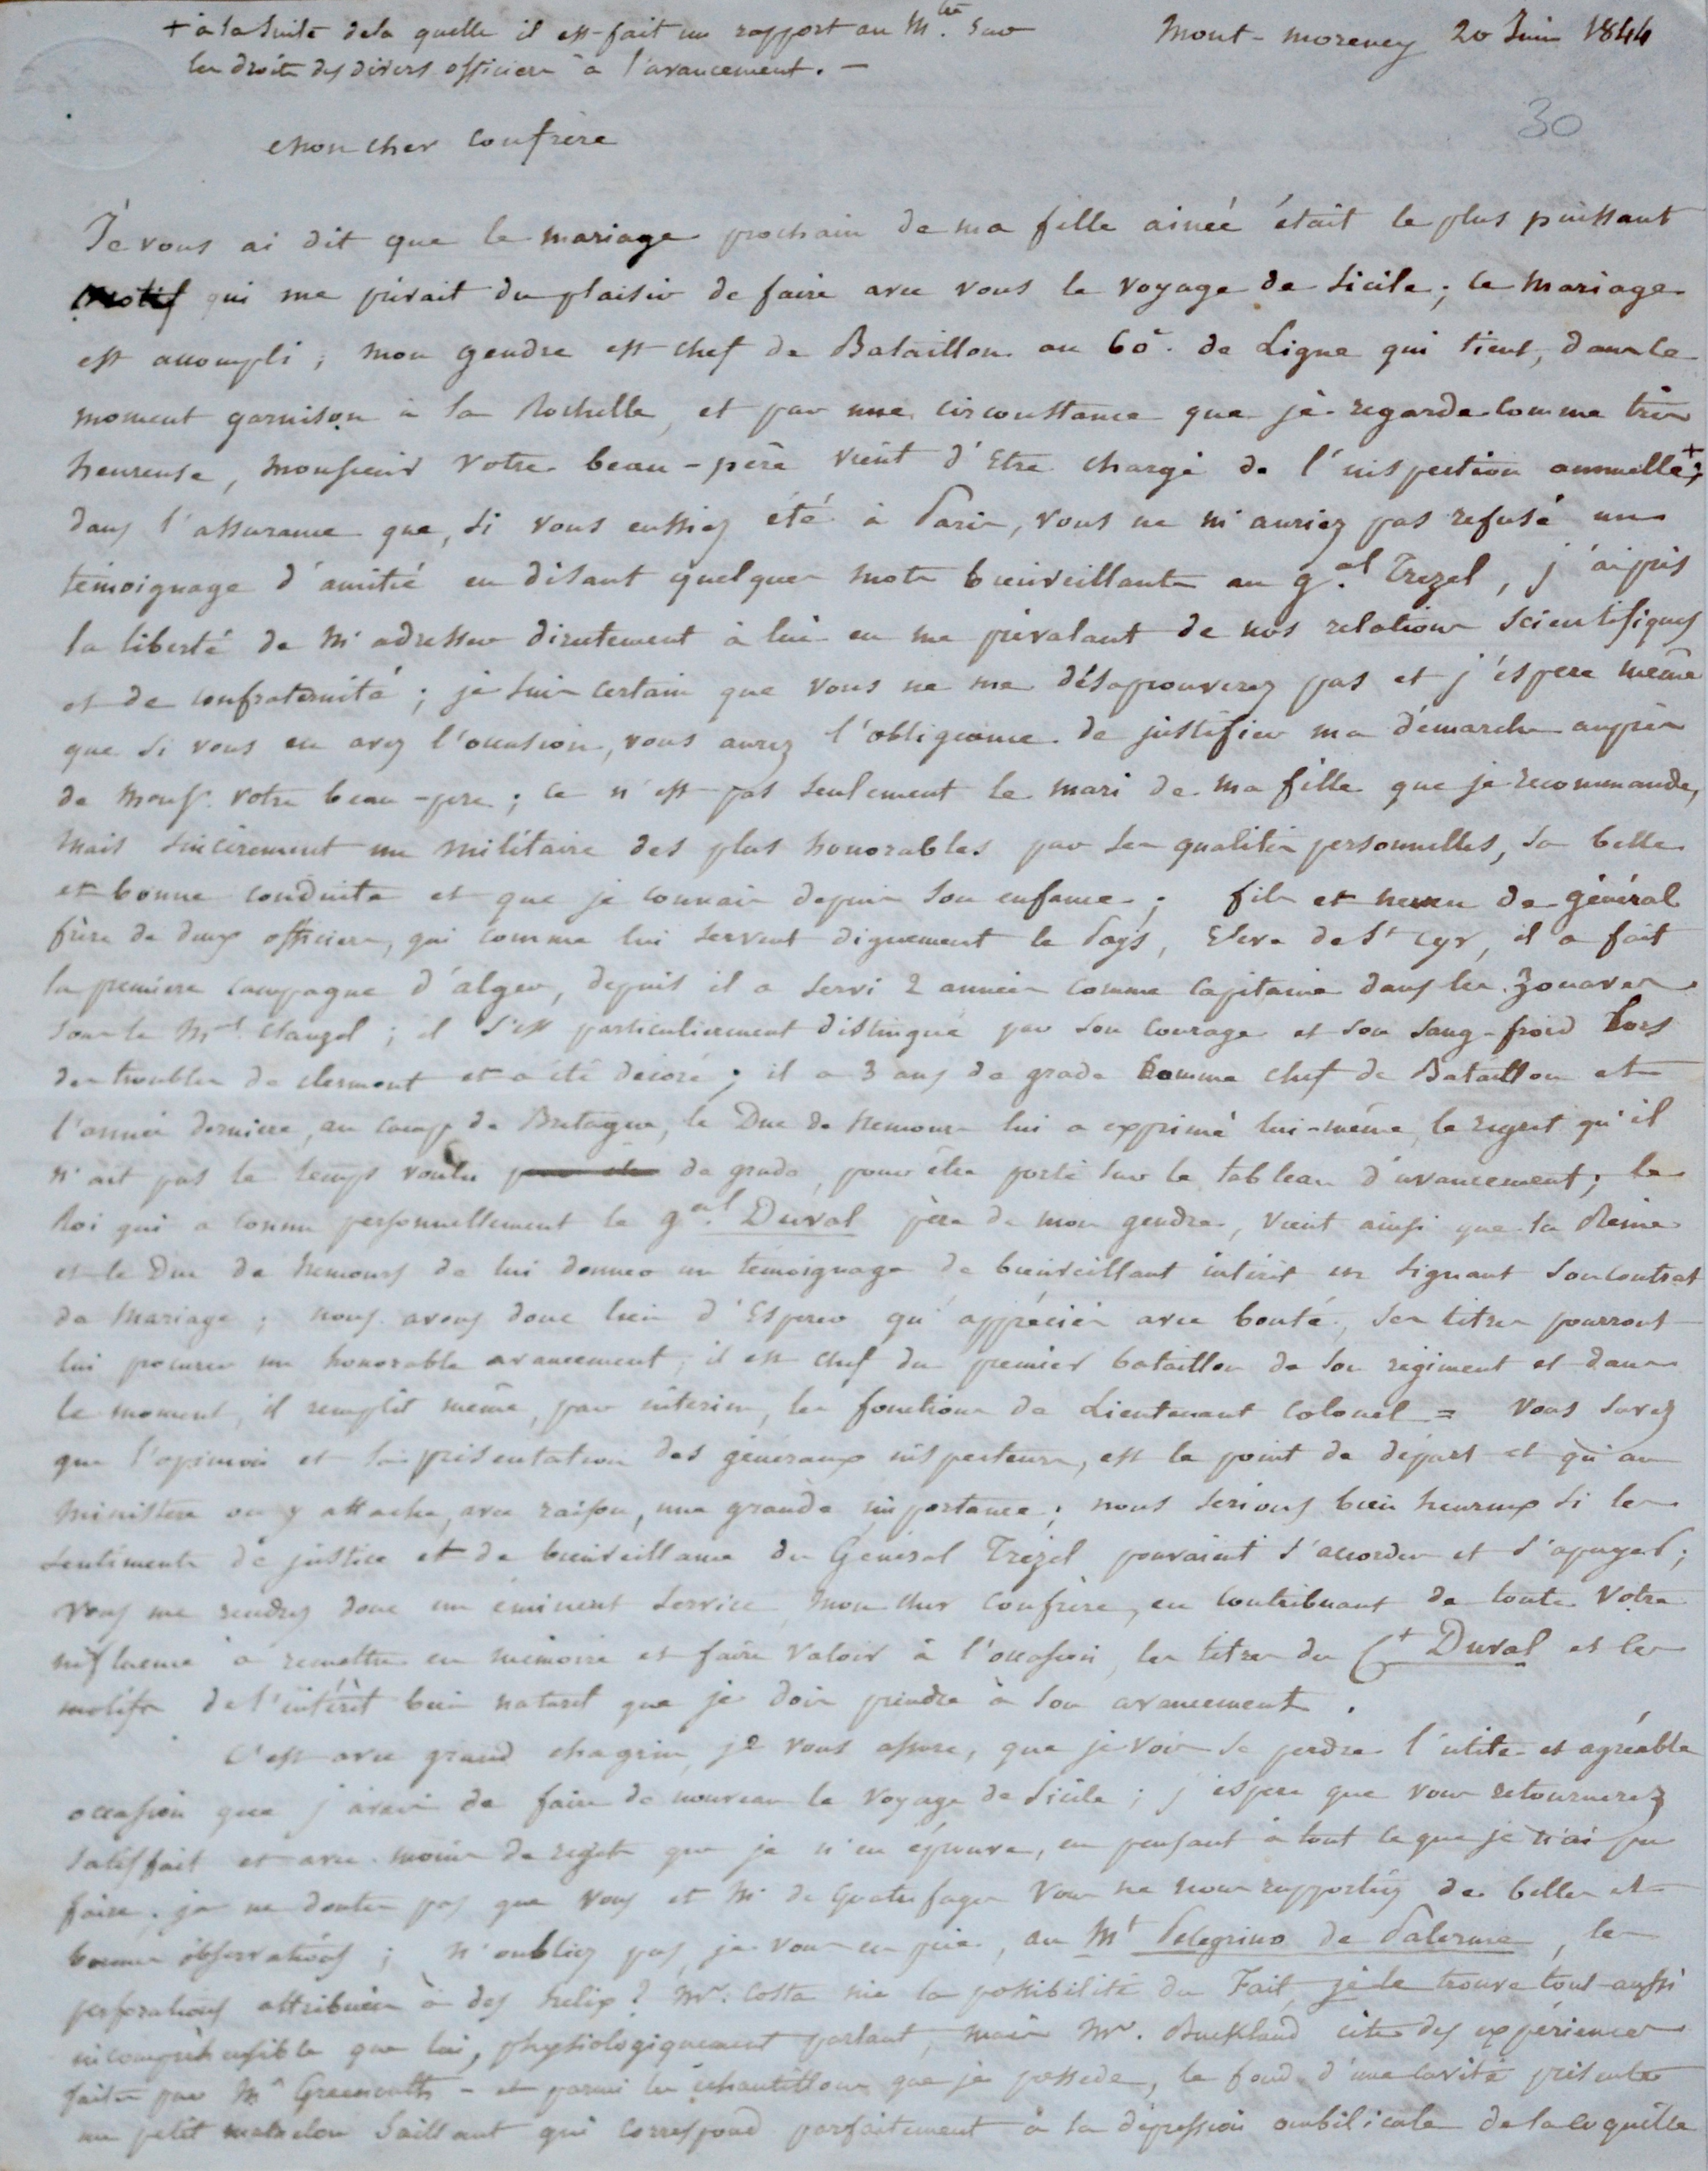 + à la Suite de la quelle il est fait un rapport au M.tre sur
les droits des divers officiers à l'avancement. —
Mont-morency 20 Juin 1844
30
Mon cher Confrère
Je vous ai dit que le mariage prochain de ma fille ainée était le plus puissant
motif qui me privait du plaisir de faire avec vous le voyage de Sicile; ce mariage
est accompli; mon gendre est chef de Bataillon au 60e. de Ligne qui tient, dans le
moment garnison à la Rochelle, et par une circonstance que je regarde comme très
heureuse, Monsieur votre beau-père vient d'Etre chargé de l'inspection annuelle+;
dans l'assurance que, si vous eussiez été à Paris, vous ne m'auriez pas refusé un
témoignage d'amitié en disant quelques mots bienveillants au g.al Trezel, j'ai pris
la liberté de m'adresser directement à lui en me prévalant de nos relations Scientifiques
et de confraternité; je suis certain que vous ne me désaprouverez pas et j'éspere même
que si vous en avez l'occasion, vous aurez l'obligeance de justifier ma démarche auprès
de Monsr. votre beau-pere; ce n'est pas seulement le mari de ma fille que je recommande,
mais sincèrement un militaire des plus honorables par ses qualités personnelles, sa belle
et bonne conduite et que je connais depuis son enfance; fils et neveu de général
frère de deux officiers, qui comme lui servent dignement le Pays, Eleve de St Cyr, il a fait
la premiere campagne d'alger, depuis il a servi 2 années comme Capitaine dans les Zouaves
sous le Mal Clauzel; il s'est particulierement distingué par son courage et son sang-froid Lors
des troubles de clermont et a été décoré; il a 3 ans de grade Comme chef de Bataillon et
l'année derniere, au camp de Bretagne, le Duc de Nemours lui a exprimé lui-même le regret qu'il
n'ait pas le temps voulu de grade, pour être porté sur le tableau d'avancement; le
Roi qui a connu personnellement le gal. Duval père de mon gendre, vient ainsi que la Reine
et le Duc de Nemours de lui donner un témoignage de bienveillant intérêt en signant son contrat
de Mariage; nous avons donc lieu d'Esperer qu'appréciés avec bonté, ses titres pourront
lui procurer un honorable avancement; il est chef du premier bataillon de son régiment et dans
le moment, il remplit même, par interim, les fonctions de Lieutenant Colonel = Vous savez
que l'opinion et la présentation des généraux inspecteurs, est le point de départ et qu'au
Ministere on y attache, avec raison, une grande importance; nous serions bien heureux si les
sentiments de justice et de bienveillance du Général Trézel pouvaient s'accorder et s'apuyer;
vous me rendrez donc un éminent service mon cher Confrère, en contribuant de toute votre
influence à remettre en mémoire et faire valoir à l'occasion les titres du Ct Duval et les
motifs de l'intérêt bien naturel que je dois prendre à son avancement.
C'est avec grand chagrin, je vous assure, que je vois se perdre l'utile et agréable
occasion que j'avais de faire de nouveau le voyage de Sicile; j'espere que vous retournerez
satisfait et avec moins de regrets que je n'en éprouve, en pensant à tout ce que je n'ai pu
faire. je ne doute pas que vous et Mr de Quatrefages vous ne nous rapportiez de belles et
bonnes observations; n'oubliez pas, je vous en prie, au Mt Pelegrino de Palerme, les
perforations attribuées à des helix? Mr. Costa nie la possibilité du Fait, je le trouve tout-aussi
incompréhensible que lui, physiologiquement parlant, mais Mr. Buckland cite des expériences
faites par Mr Greenough - et parmi les échantillons que je possede, le fond d'une cavité présente
un petit mamelon saillant qui correspond parfaitement à la dépression ombilicale de la coquille